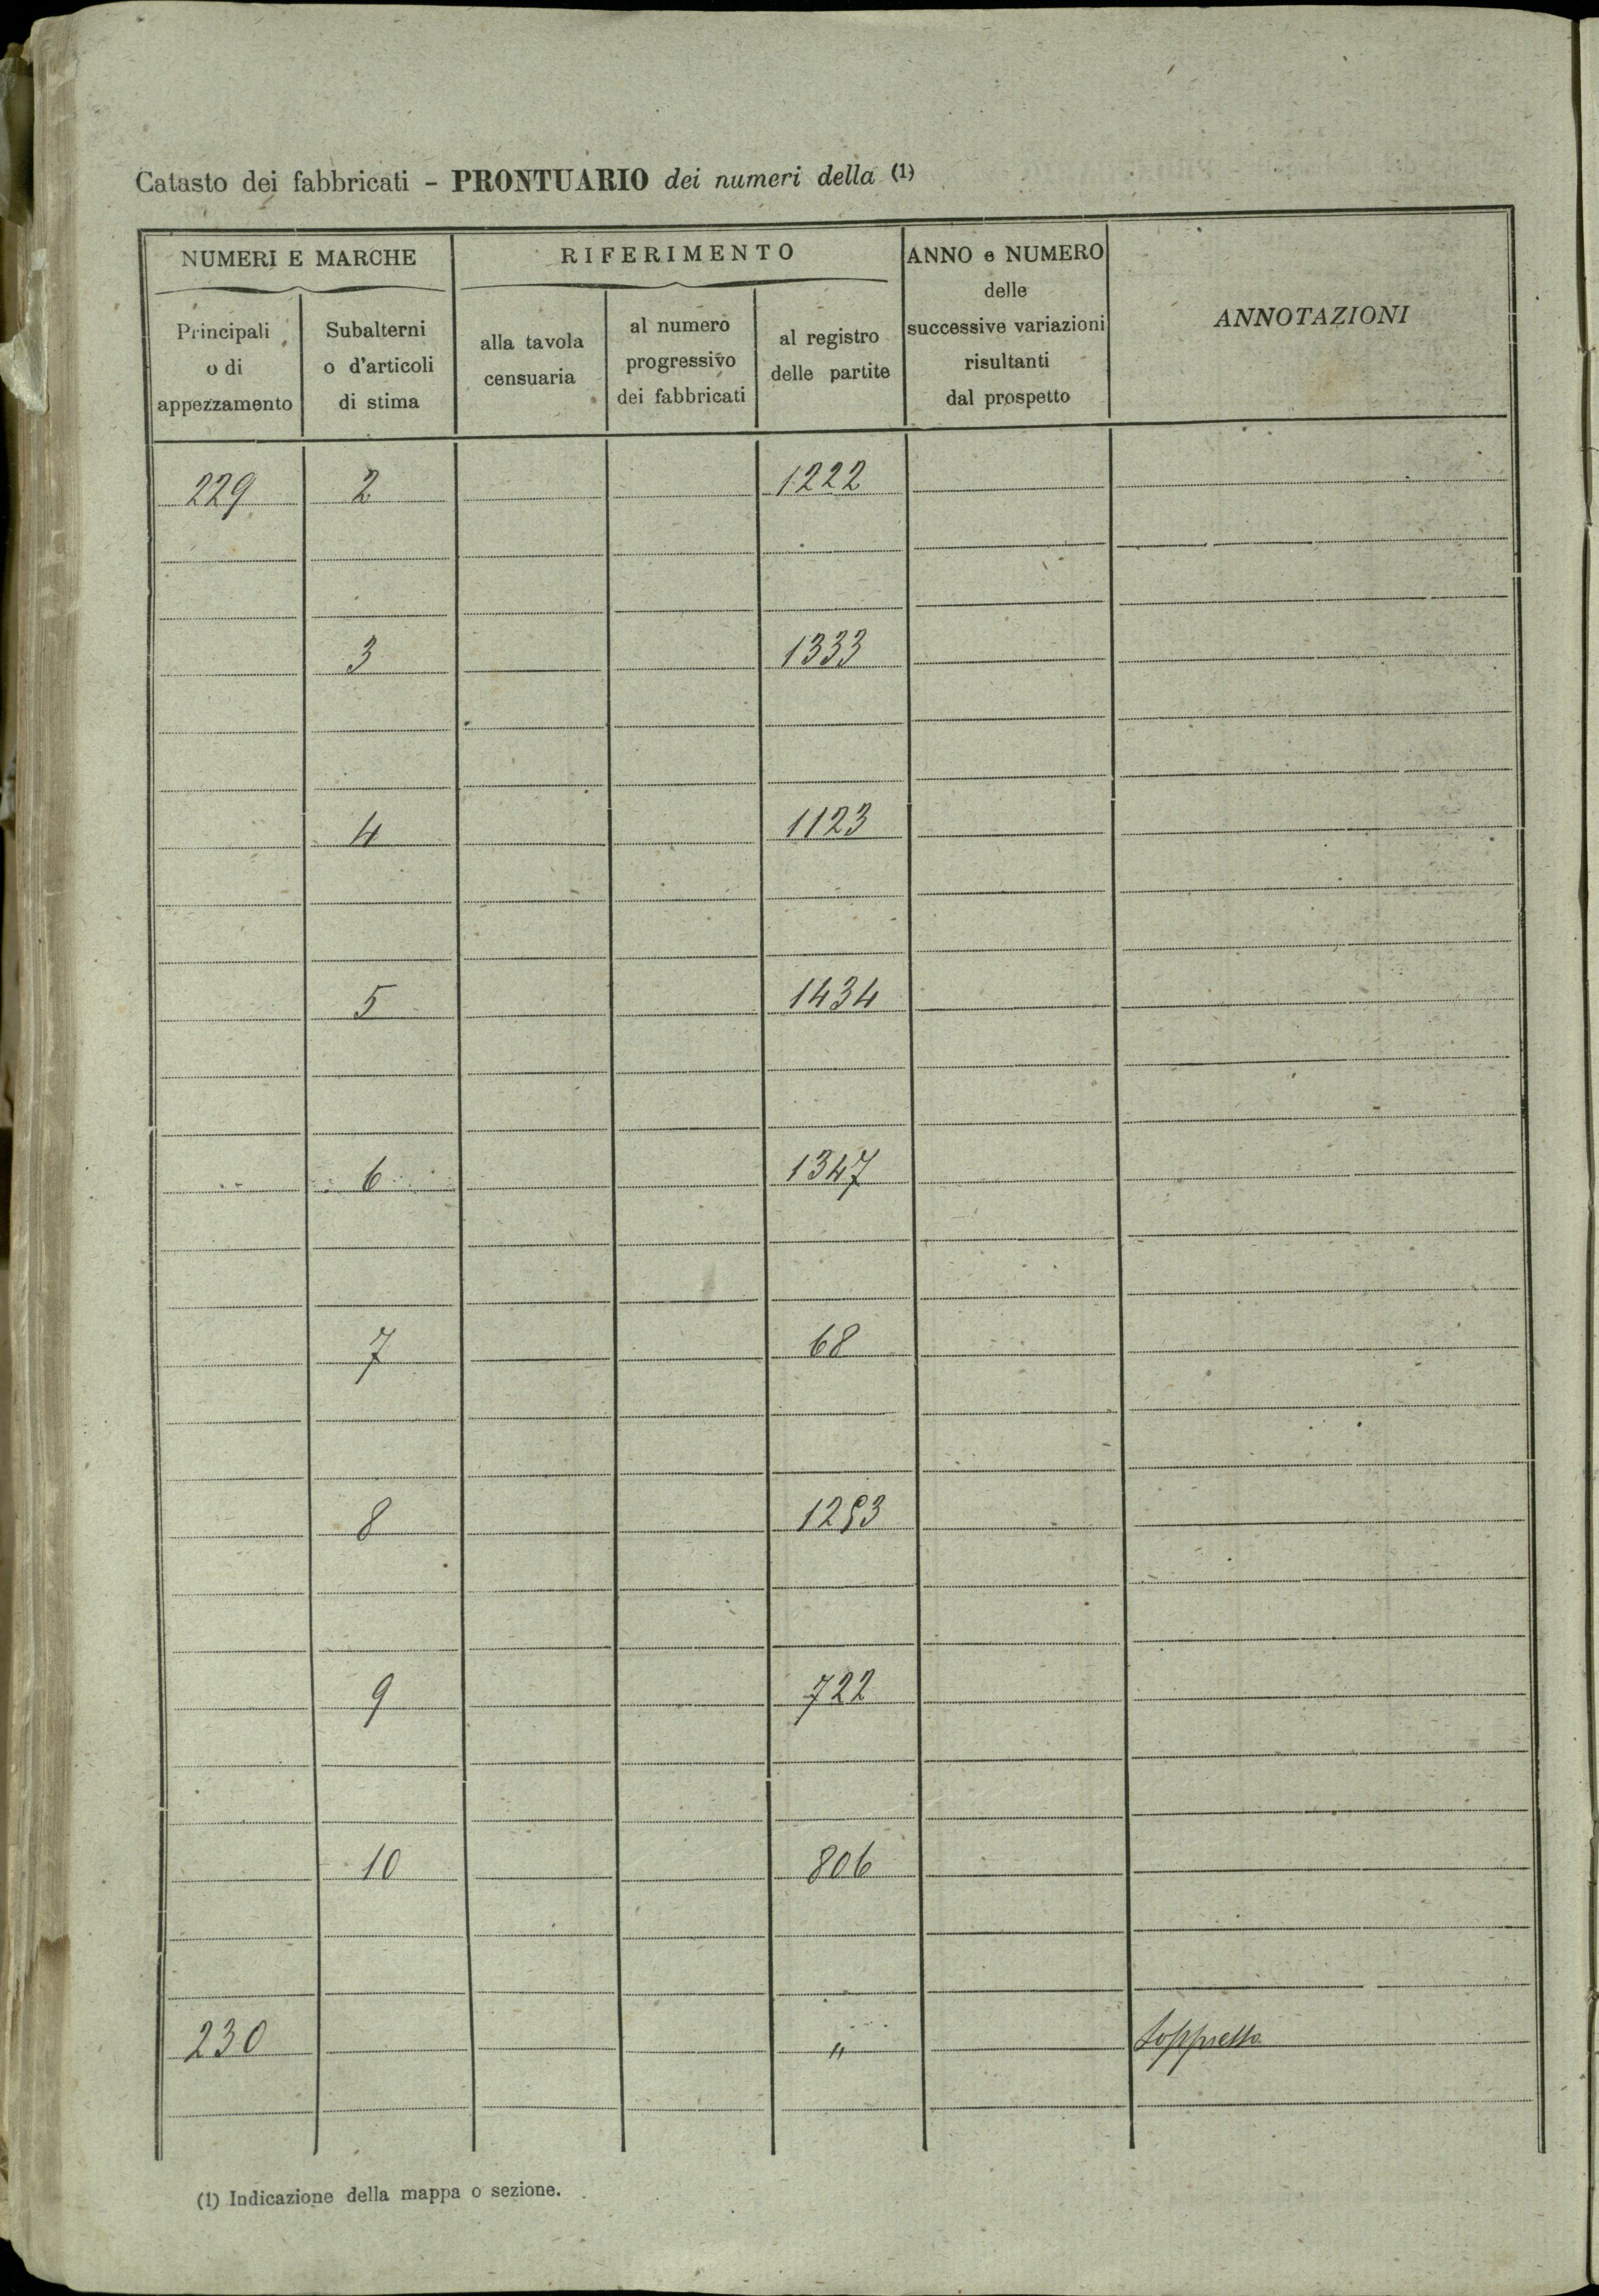 Catasto dei fabbricati - PRONTUARIO dei numeri della (1)
NUMERI E MARCHE
RIFERIMENTO
ANNO e NUMERO
delle
successive variazioni
risultanti
dal prospetto
ANNOTAZIONI
Principali
o di
appezzamento
Subalterni
o d'articoli
di stima
alla tavola
censuaria
al numero
progressivo
dei fabbricati
al registro
delle partite
229 2 1222
3 1333
4 1123
5 1434
6 1347
7 68
8 1293
9 722
10 806
230 " Soppresso
(1) Indicazione della mappa o sezione.